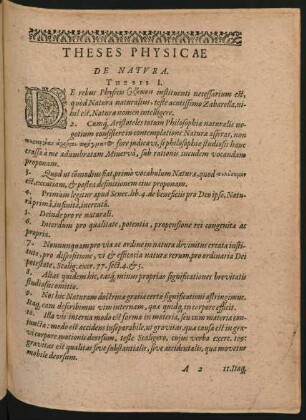 THESES PHYSICAE
DE NATVRA.
THESIS I.
DE rebus Physicis instituenti necessarium est,
quod Natura naturalius, teste acutissimo Zabarella, ni-
hil est, Naturæ nomen intelligere.
2. Cumq́, Aristoteles totum Philosophiæ naturalis ne-
gotium consistere in contemplatione Naturæ asserat, non
fore judicavi, si philosophiæ studiosis hanc
crassâ à me adumbratam Minervâ, sub rationis incudem vocandam
proponam.
3. Quod ut commodius fiat, primò vocabulum Naturæ, quod
est, excutiam, & postea definitionem ejus proponam.
4. Præmium legitur apud Senec. lib. 4. de beneficiis pro Deo ipso, Natu-
râ primâ, infinitâ, increatâ.
5. Deinde pro re naturali.
6. Interdum pro qualitate, potentia, propensione rei congenita ac
propria.
7. Nonnunquam pro via ac ordine in natura divinitus creata institu-
to, pro dispositione, vi & efficacia natura rerum, pro ordinaria Dei
potestate, Scalig. exer. 77. sect. 4. & 5.
8. Alias quidem hic, easq́, minus proprias significationes brevitatis
studiosus omitto.
9. Nos huic Naturam doctrinæ gratiâ certæ significationi astringimus.
Itaq, eam describimus vim internam, quæ quidq́, in corpore efficit.
10. Illa vis interna modò est forma in materia, seu cum materia con-
juncta: modò est accidens inseparabile, ut gravitas, quæ causa est in gra-
vi corpore motionis deorsum, teste Scaligero, cujus verba exer.
gravitas est qualitas seve substantialis, seve accidentalis, qua movetur
mobile deorsum.
A 2 11. Itaq,